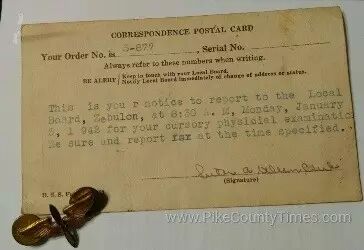 CORRESPONDENCE POSTAL CARD
Your Order No. is S-877, Serial No.
Always refer to these numbers when writing.
BE ALERT { Keep in touch with your Local Board.
Notify Local Board immediately of change of address or status.
This is you r notice to report to the Local
Board, Zebulon, at 8:30 A. M, Monday, January
5, 1 942 for your cursory physicial examinatio
Be sure and report for at the time specified.
(Signature)
D. S. S.
www.PikeCountyTimes.com